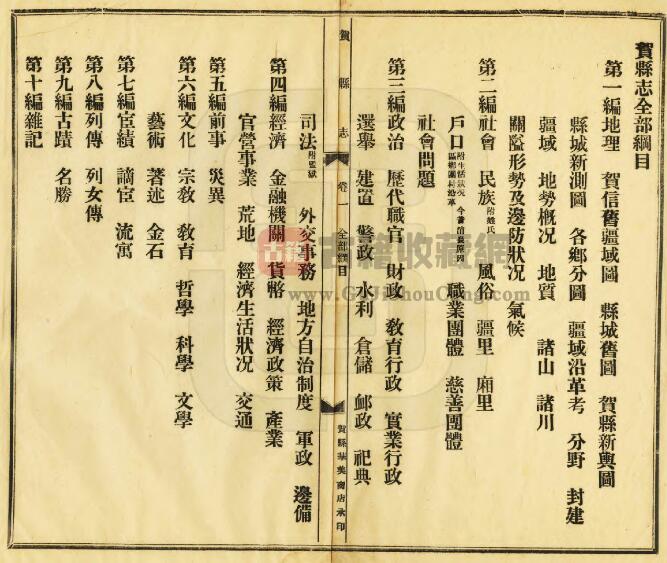 賀縣志全部綱目
第一編地理　賀信舊疆域圖　縣城舊圖　賀縣新輿圖
縣城新測圖　各鄉分圖　疆域沿革考　分野　封建
疆域　地勢概況　地質　諸山　諸川
關隘形勢及邊防狀況　氣候
第二編社會　民族附姓氏　風俗　疆里　廂里
戶口　職業團體　慈善團體
社會問題
第三編政治　歷代職官　財政　敎育行政　實業行政
選舉　建置　警政　水利　倉儲　郵政　祀典
賀縣志　卷一　全部綱目　賀縣華美商店承印
司法附監獄　外交事務　地方自治制度　軍政　邊備
第四編經濟　金融機關　貨幣　經濟政策　產業
官營事業　荒地　經濟生活狀況　交通
第五編前事　災異
第六編文化　宗敎　敎育　哲學　科學　文學
藝術　著述　金石
第七編宦績　謫宦　流寓
第八編列傳　列女傳
第九編古蹟　名勝
第十編雜記
古籍收藏網
www.GuJiShouCang.com